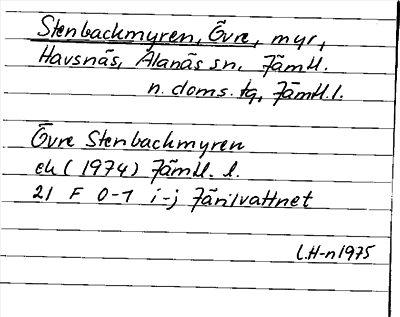 Stenbackmyren, Övre, myr,
Havsnäs, Alanäs sn. Jämtl.
n. doms. tg, Jämtl. l.
Övre Stenbackmyren
ek (1974) Jämtl. l.
21 F 0-1 i-j Järilvattnet
l.H-n 1975